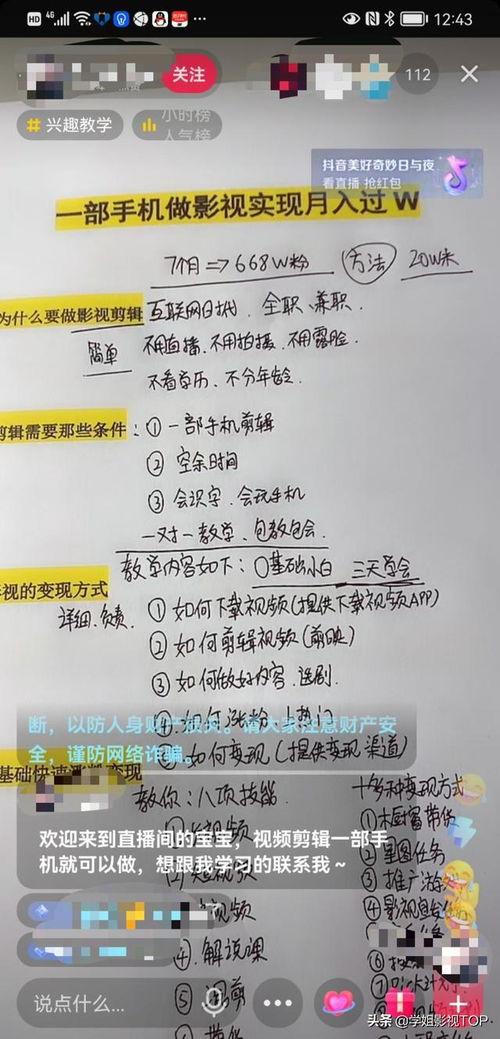 HD 4G 12:43
关注 112
兴趣教学
小时榜
人气榜
抖音美好奇妙日与夜
看直播 抢红包
一部手机做影视实现月入过 W
7个月⇒668W粉 方法 20W米
为什么要做影视剪辑 互联网时代、全职、兼职.
简单 不用直播、不用拍摄、不用露脸.
不看学历、不分年龄.
剪辑需要那些条件：①一部手机剪辑
② 空余时间
③ 会识字、会玩手机
一对一教学、包教包会.
教学内容如下：0基础小白 三天学会
视的变现方式
详细、负责. ① 如何下载视频(提供下载视频APP)
② 如何剪辑视频(剪映)
③ 如何做好内容、选剧.
④ 如何涨粉、上热门
断，以防人身财产损失。请大家注意财产安
全，谨防网络诈骗。
⑤ 如何变现(提供变现渠道)
基础快速 变现
教你：八项技能. 十多种变现方式
欢迎来到直播间的宝宝，视频剪辑一部手
机就可以做，想跟我学习的联系我～
①橱窗带货
②星图任务
③推广
④影视
④. 解说课
⑤
说点什么...
头条 @学姐影视TOP